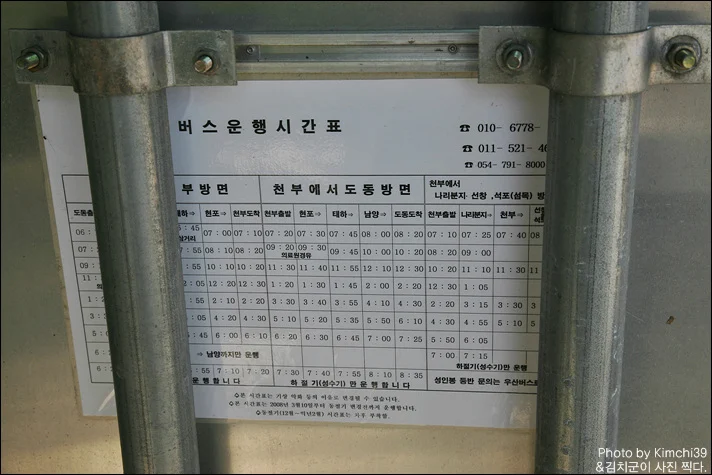 버스운행시간표
☎ 010- 6778-
☎ 011- 521- 4
☎ 054- 791- 8000
부방면 천부에서도동방면 천부에서
나리분지· 선창 ,석포(섬목) 방
도동출 태하⇒ 현포⇒ 천부도착 천부출발 현포⇒ 태하⇒ 남양⇒ 도동도착 천부출발 나리분지⇒ 천부⇒
06 : : 45 07 : 00 07 : 10 07 : 20 07 : 30 07 : 45 08 : 00 08 : 20 07 : 10 07 : 25 07 : 40 08
07 : : 55 08 : 10 08 : 20 09 : 20 09 : 30 09 : 45 10 : 00 10 : 20 08 : 30 09 : 00
의료원경유
: 55 10 : 10 10 : 20 11 : 30 11 : 40 11 : 55 12 : 10 12 : 30 10 : 20 11 : 10 11 : 30 11
2 : 05 12 : 20 12 : 30 1 : 20 1 : 30 1 : 45 2 : 00 2 : 20 12 : 30 1 : 05
1 : 2 : 05 2 : 10 2 : 20 3 : 30 3 : 40 3 : 55 4 : 10 4 : 30 2 : 20 3 : 15 3 : 30 3
: 05 4 : 20 4 : 30 5 : 10 5 : 20 5 : 35 5 : 50 6 : 10 4 : 30 4 : 55 5 : 10 5
: 45 6 : 00 6 : 10 6 : 20 6 : 30 6 : 45 7 : 00 7 : 25 5 : 50 6 : 05
⇒ 남양까지만 운행 7 : 00 7 : 15
하절기(성수기)만 운행
: 55 7 : 10 7 : 20 7 : 30 7 : 40 7 : 55 8 : 10 8 : 35
운행합니다 하절기(성수기) 만 운행합니다 성인봉 등반 문의는 우산버스로
♤본 시간표는 기상 악화 등의 이유로 변경될 수 있습니다.
♤본 시간표는 2008년 3월10일부터 동절기 변경전까지 운행합니다.
♤동절기(12월~익년2월) 시간표는 차후 부착함.
Photo by Kimchi39
&김치군이 사진 찍다.